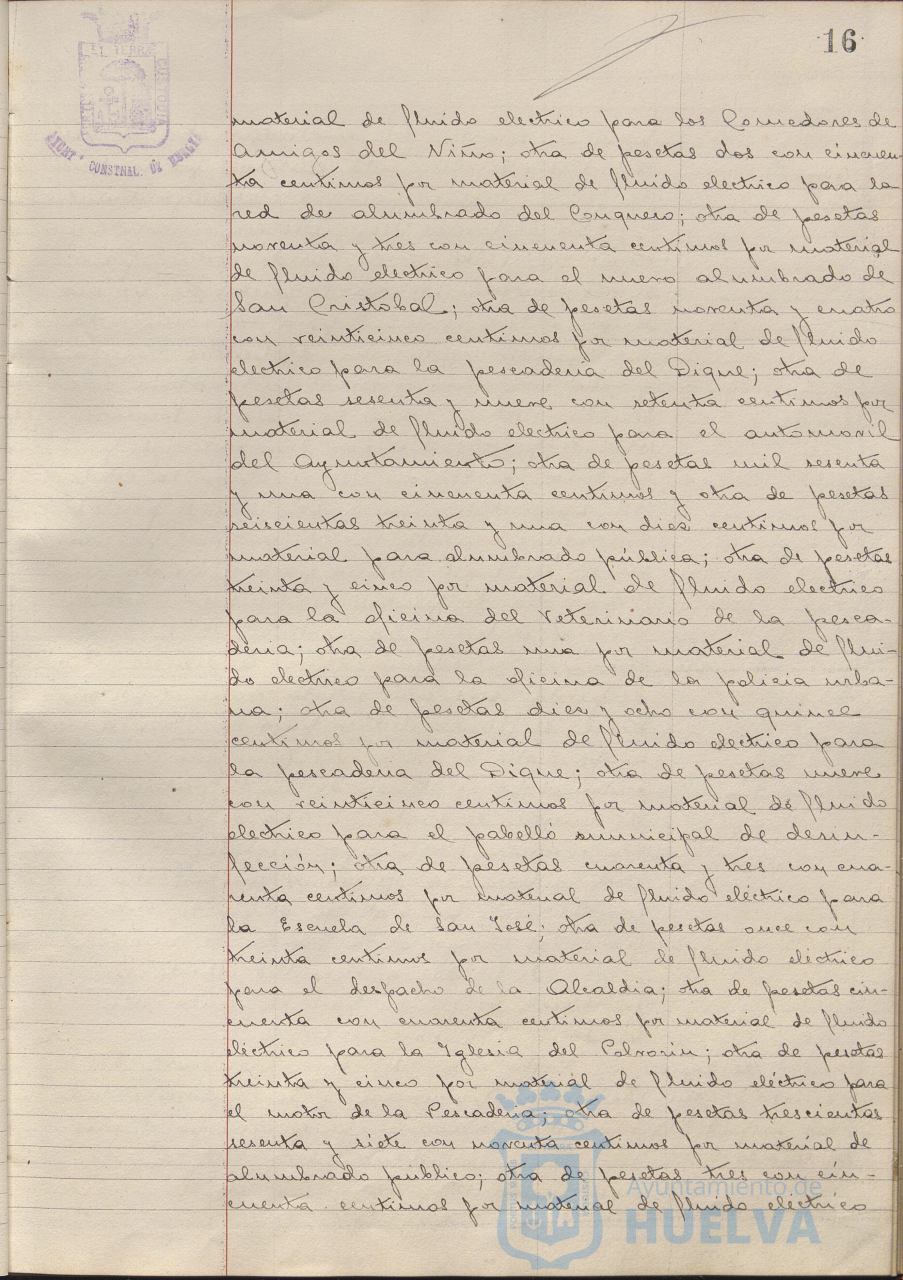 16
material de fluido electrico para los Comedores de
Amigos del Niño; otra de pesetas dos con cincuen-
ta centimos por material de fluido electrico para la
red de alumbrado del Conquero; otra de pesetas
noventa y tres con cincuenta centimos por material
de fluido electrico para el nuevo alumbrado de
San Cristobal; otra de pesetas noventa y cuatro
con veinticinco centimos por material de fluido
electrico para la pescaderia del Dique; otra de
pesetas sesenta y nueve con setenta centimos por
material de fluido electrico para el automovil
del Ayuntamiento; otra de pesetas mil sesenta
y una con cincuenta centimos y otra de pesetas
seiscientas treinta y una con diez centimos por
material para alumbrado pública; otra de pesetas
treinta y cinco por material de fluido electrico
para la oficina del Veterinario de la pesca-
deria; otra de pesetas una por material de flui-
do electrico para la oficina de la policia urba-
na; otra de pesetas diez y ocho con quince
centimos por material de fluido electrico para
la pescaderia del Dique; otra de pesetas nueve
con veinticinco centimos por material de fluido
electrico para el pabelló municipal de desin-
fección; otra de pesetas cuarenta y tres con cua-
renta centimos por material de fluido eléctrico para
la Escuela de San José; otra de pesetas once con
treinta centimos por material de fluido eléctrico
para el despacho de la Alcaldia; otra de pesetas cin-
cuenta con cuarenta centimos por material de fluido
eléctrico para la Iglesia del Polvorin; otra de pesetas
treinta y cinco por material de fluido eléctrico para
el motor de la Pescaderia; otra de pesetas trescientas
sesenta y siete con noventa centimos por material de
alumbrado público; otra de pesetas tres con cin-
cuenta centimos por material de fluido electrico
Ayuntamiento de
HUELVA